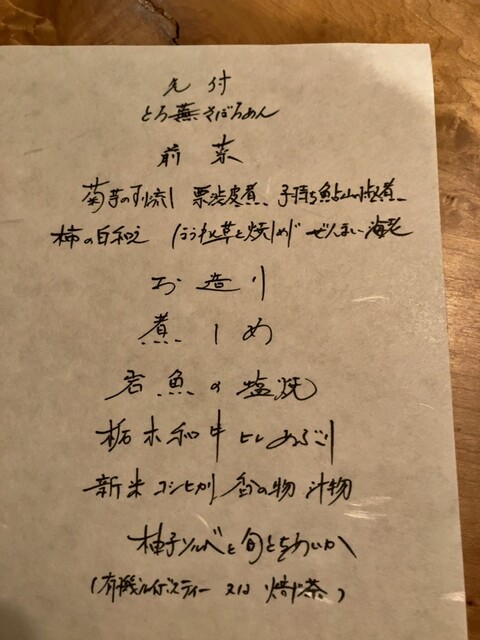 先付
とろ蕪そぼろあん
前菜
菊芋のすり流し 栗渋皮煮、子持ち鮎山椒煮、
柿の白和え ほうれん草と焼しめじ ぜんまい 海老
お造り
煮しめ
岩魚の塩焼
栃木和牛ヒレあぶり
新米コシヒカリ 香の物 汁物
柚子ソルベと旬とちあいか
(有機ルイボスティー 又は 焙じ茶)